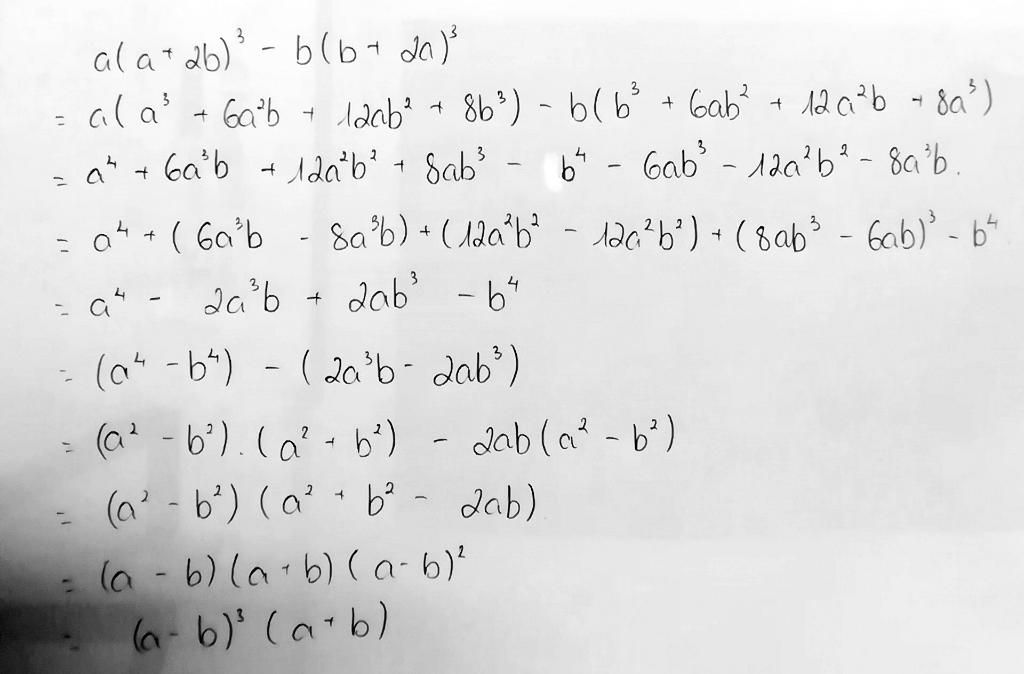 a(a + 2b)³ - b(b + 2a)³
= a(a³ + 6a²b + 12ab² + 8b³) - b(b³ + 6ab² + 12a²b + 8a³)
= a⁴ + 6a³b + 12a²b² + 8ab³ - b⁴ - 6ab³ - 12a²b² - 8a³b.
= a⁴ + (6a³b - 8a³b) + (12a²b² - 12a²b²) + (8ab³ - 6ab)³ - b⁴
= a⁴ - 2a³b + 2ab³ - b⁴
= (a⁴ - b⁴) - (2a³b - 2ab³)
= (a² - b²).(a² + b²) - 2ab(a² - b²)
= (a² - b²)(a² + b² - 2ab)
= (a - b)(a + b)(a - b)²
= (a - b)³(a + b)